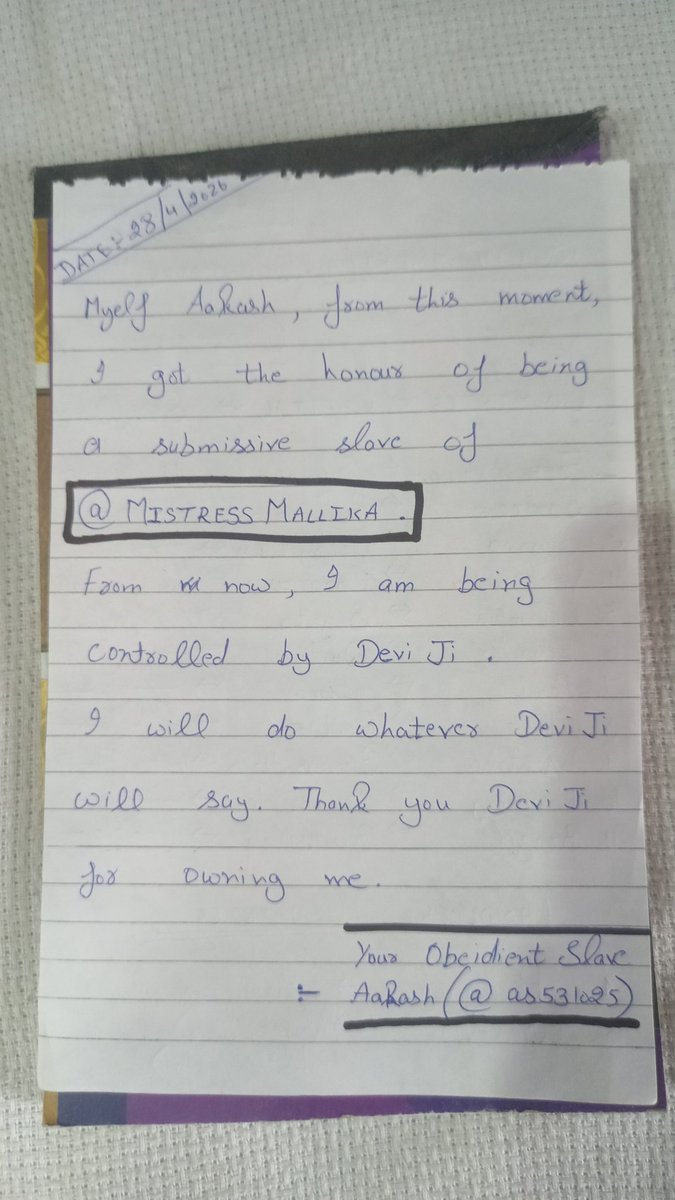 DATE:- 28/4/2026
Myelf Aakash, from this moment,
I got the honour of being
a submissive slave of
@ MISTRESS MALLIKA.
From now, I am being
controlled by Devi Ji.
I will do whatever Devi Ji
will say. Thank you Devi Ji
for owning me.
Your Obeidient Slave
:- Aakash (@ as531025)